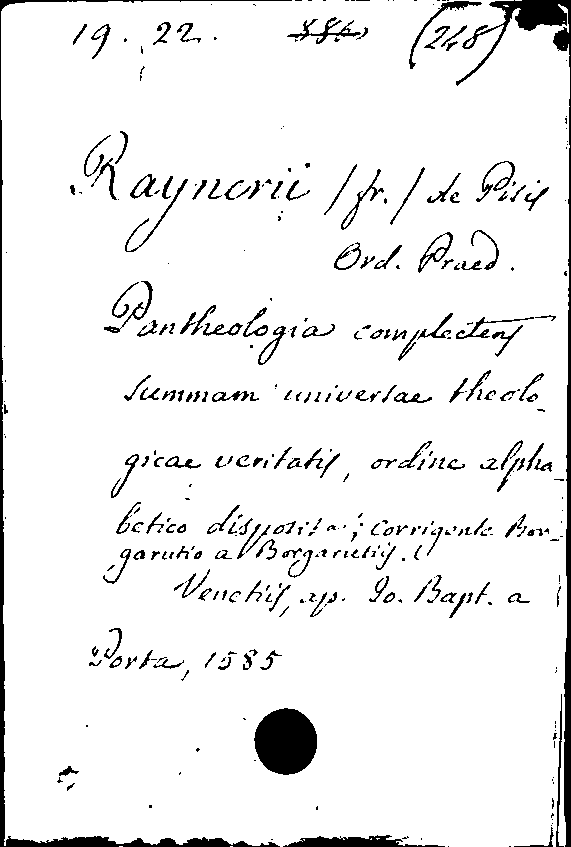 19. 22. 386 (248)
Raynerii /fr./ de Pisis
Ord. Praed.
Pantheologia complectens
summam universae theolo-
gicae veritatis, ordine alpha-
betico disposita; corrigente Bor-
garutio a Borgarutiis.
Venetiis, ap. Io. Bapt. a
Porta, 1585